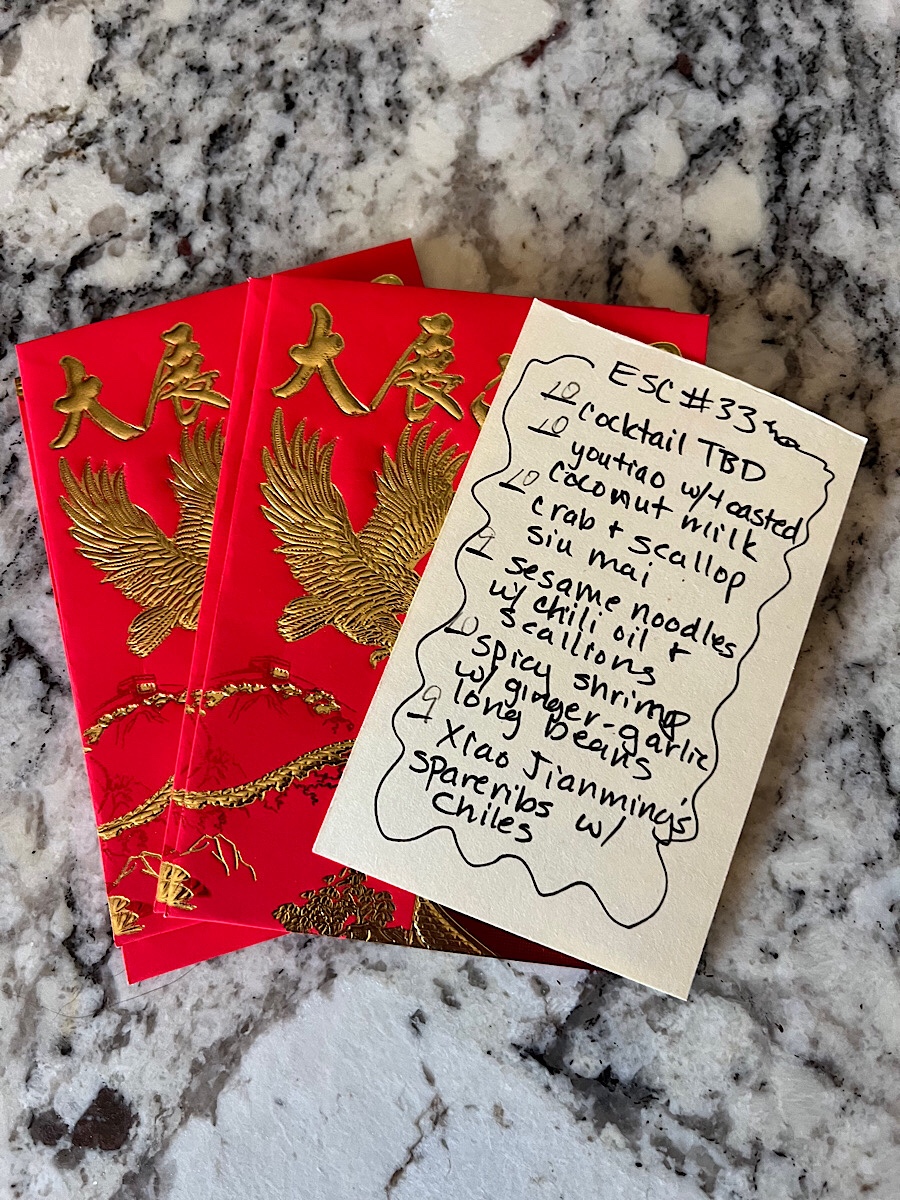 大展
大展
ESC #33
10 cocktail TBD
10 youtiao w/ toasted
coconut milk
10 crab + scallop
siu mai
9 sesame noodles
w/ chili oil +
scallions
10 spicy shrimp
w/ ginger-garlic
long beans
9 Xiao Jianming's
spareribs w/
chiles